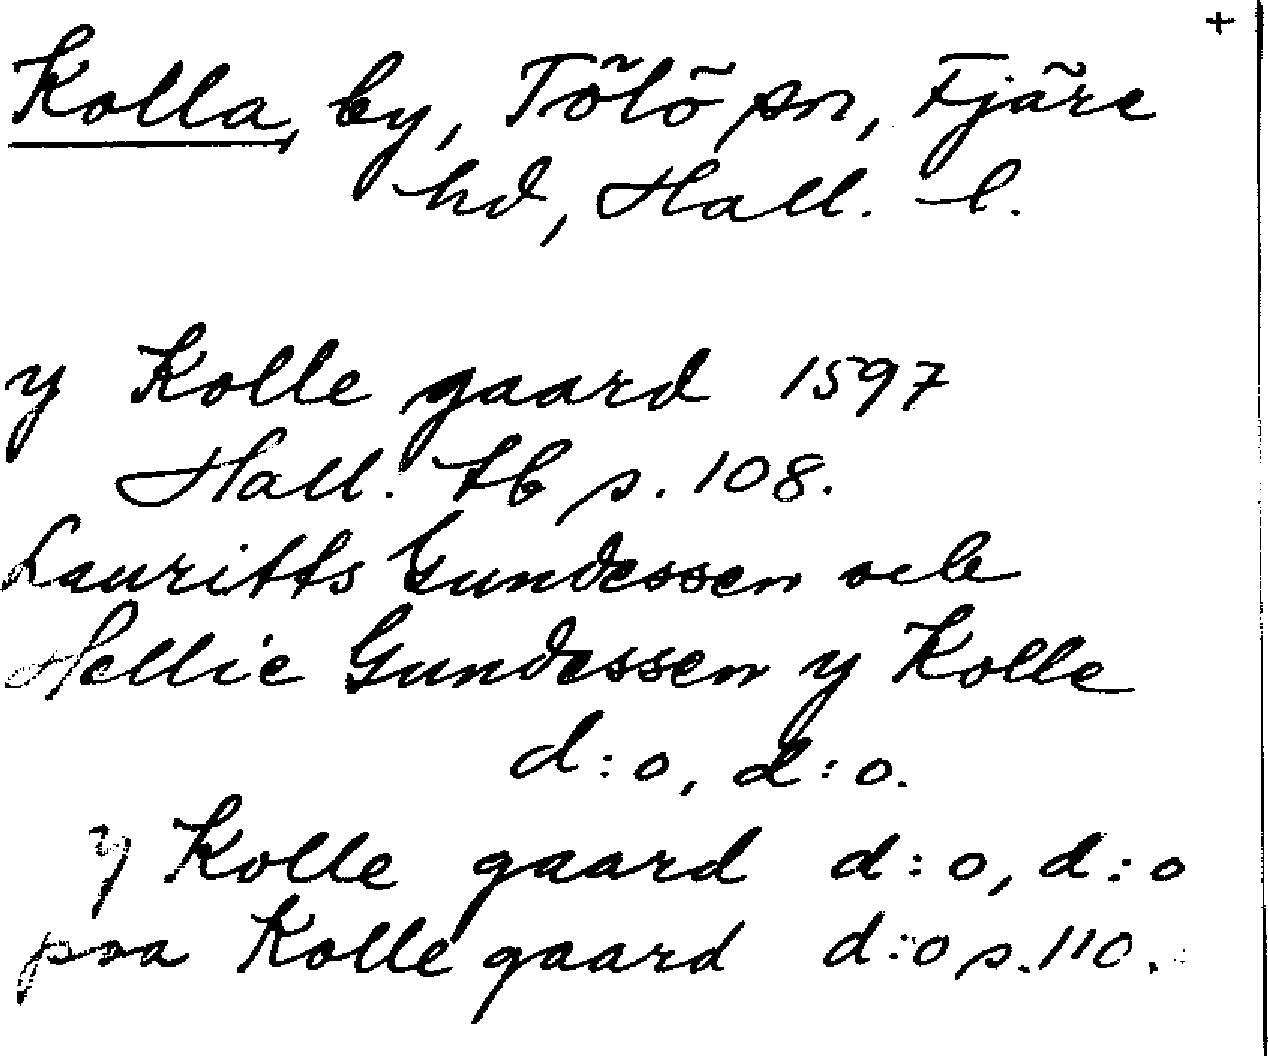 +
Kolla, by, Tölö sn, Fjäre
hd, Hall. l.
y Kolle gaard 1597
Hall. tb s. 108.
Lauritts Gundessen och
Hellie Gundessen y Kolle
d:o, d:o.
y Kolle gaard d:o, d:o
paa Kolle gaard d:o s. 110.